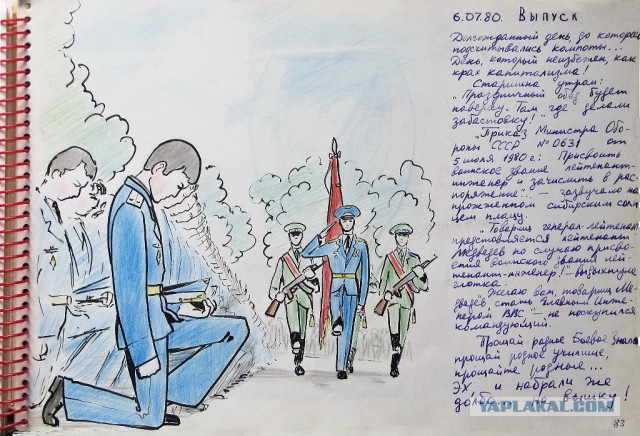 6.07.80. Выпуск
Долгожданный день, до которого
подсчитывались компоты...
День, который неизбежен, как
крах капитализма!
Старшина утром:
„Праздничный обед будет
наверху. Там, где делали
забастовку!"
„Приказ Министра Обо-
роны СССР №0631 от
5 июля 1980 г: Присвоить
воинское звание лейтенант-
инженер и зачислить в рас-
поряжение..." зазвучало на
прожженном сибирским солн
цем плацу.
„Товарищ генерал-лейтенант
представляется лейтенант
Медведев по случаю присво-
ения воинского звания лей-
тенант-инженер!"
глотка.
„Желаю вам, товарищ Ме
дведев, стать Главным Инже-
нером ВВС" – не поскупился
командующий.
Прощай родное Боевое Знамя
прощай родное училище,
прощайте родные...
Эх, и набрали же
на вышку!
YAPLAKAL.COM
83